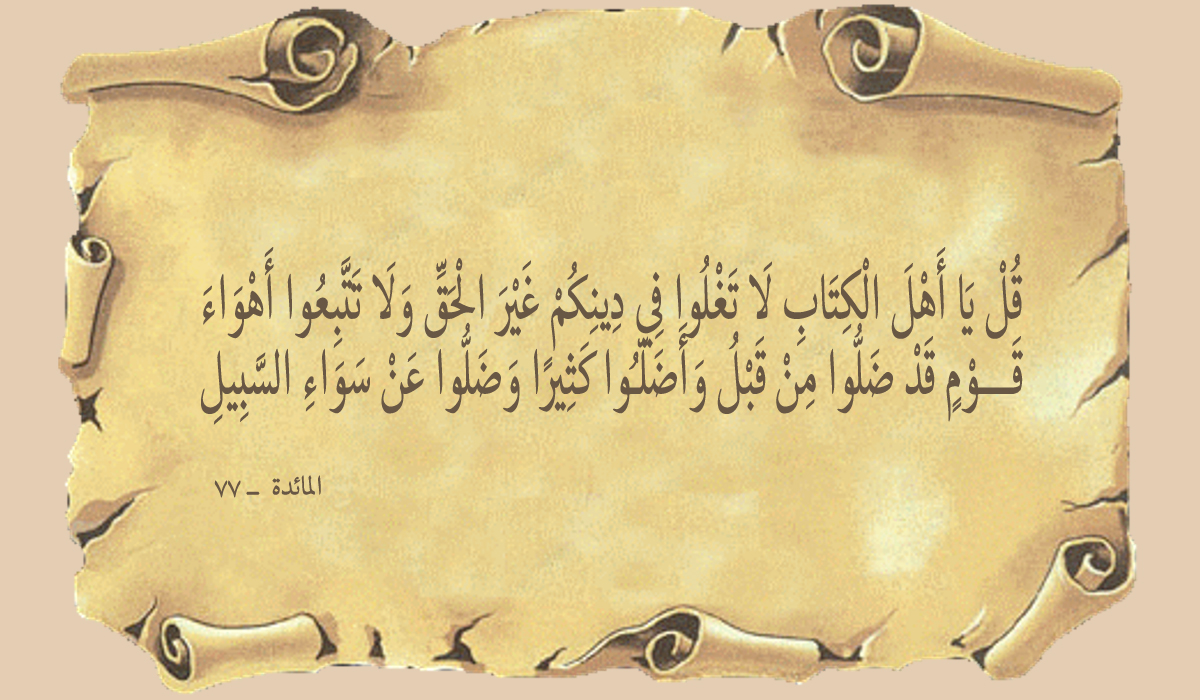 قُلْ يَا أَهْلَ الْكِتَابِ لَا تَغْلُوا فِي دِينِكُمْ غَيْرَ الْحَقِّ وَلَا تَتَّبِعُوا أَهْوَاءَ
قَـــوْمٍ قَدْ ضَلُّوا مِنْ قَبْلُ وَأَضَلُّـوا كَثِيرًا وَضَلُّوا عَنْ سَوَاءِ السَّبِيلِ
المائدة ــ ٧٧